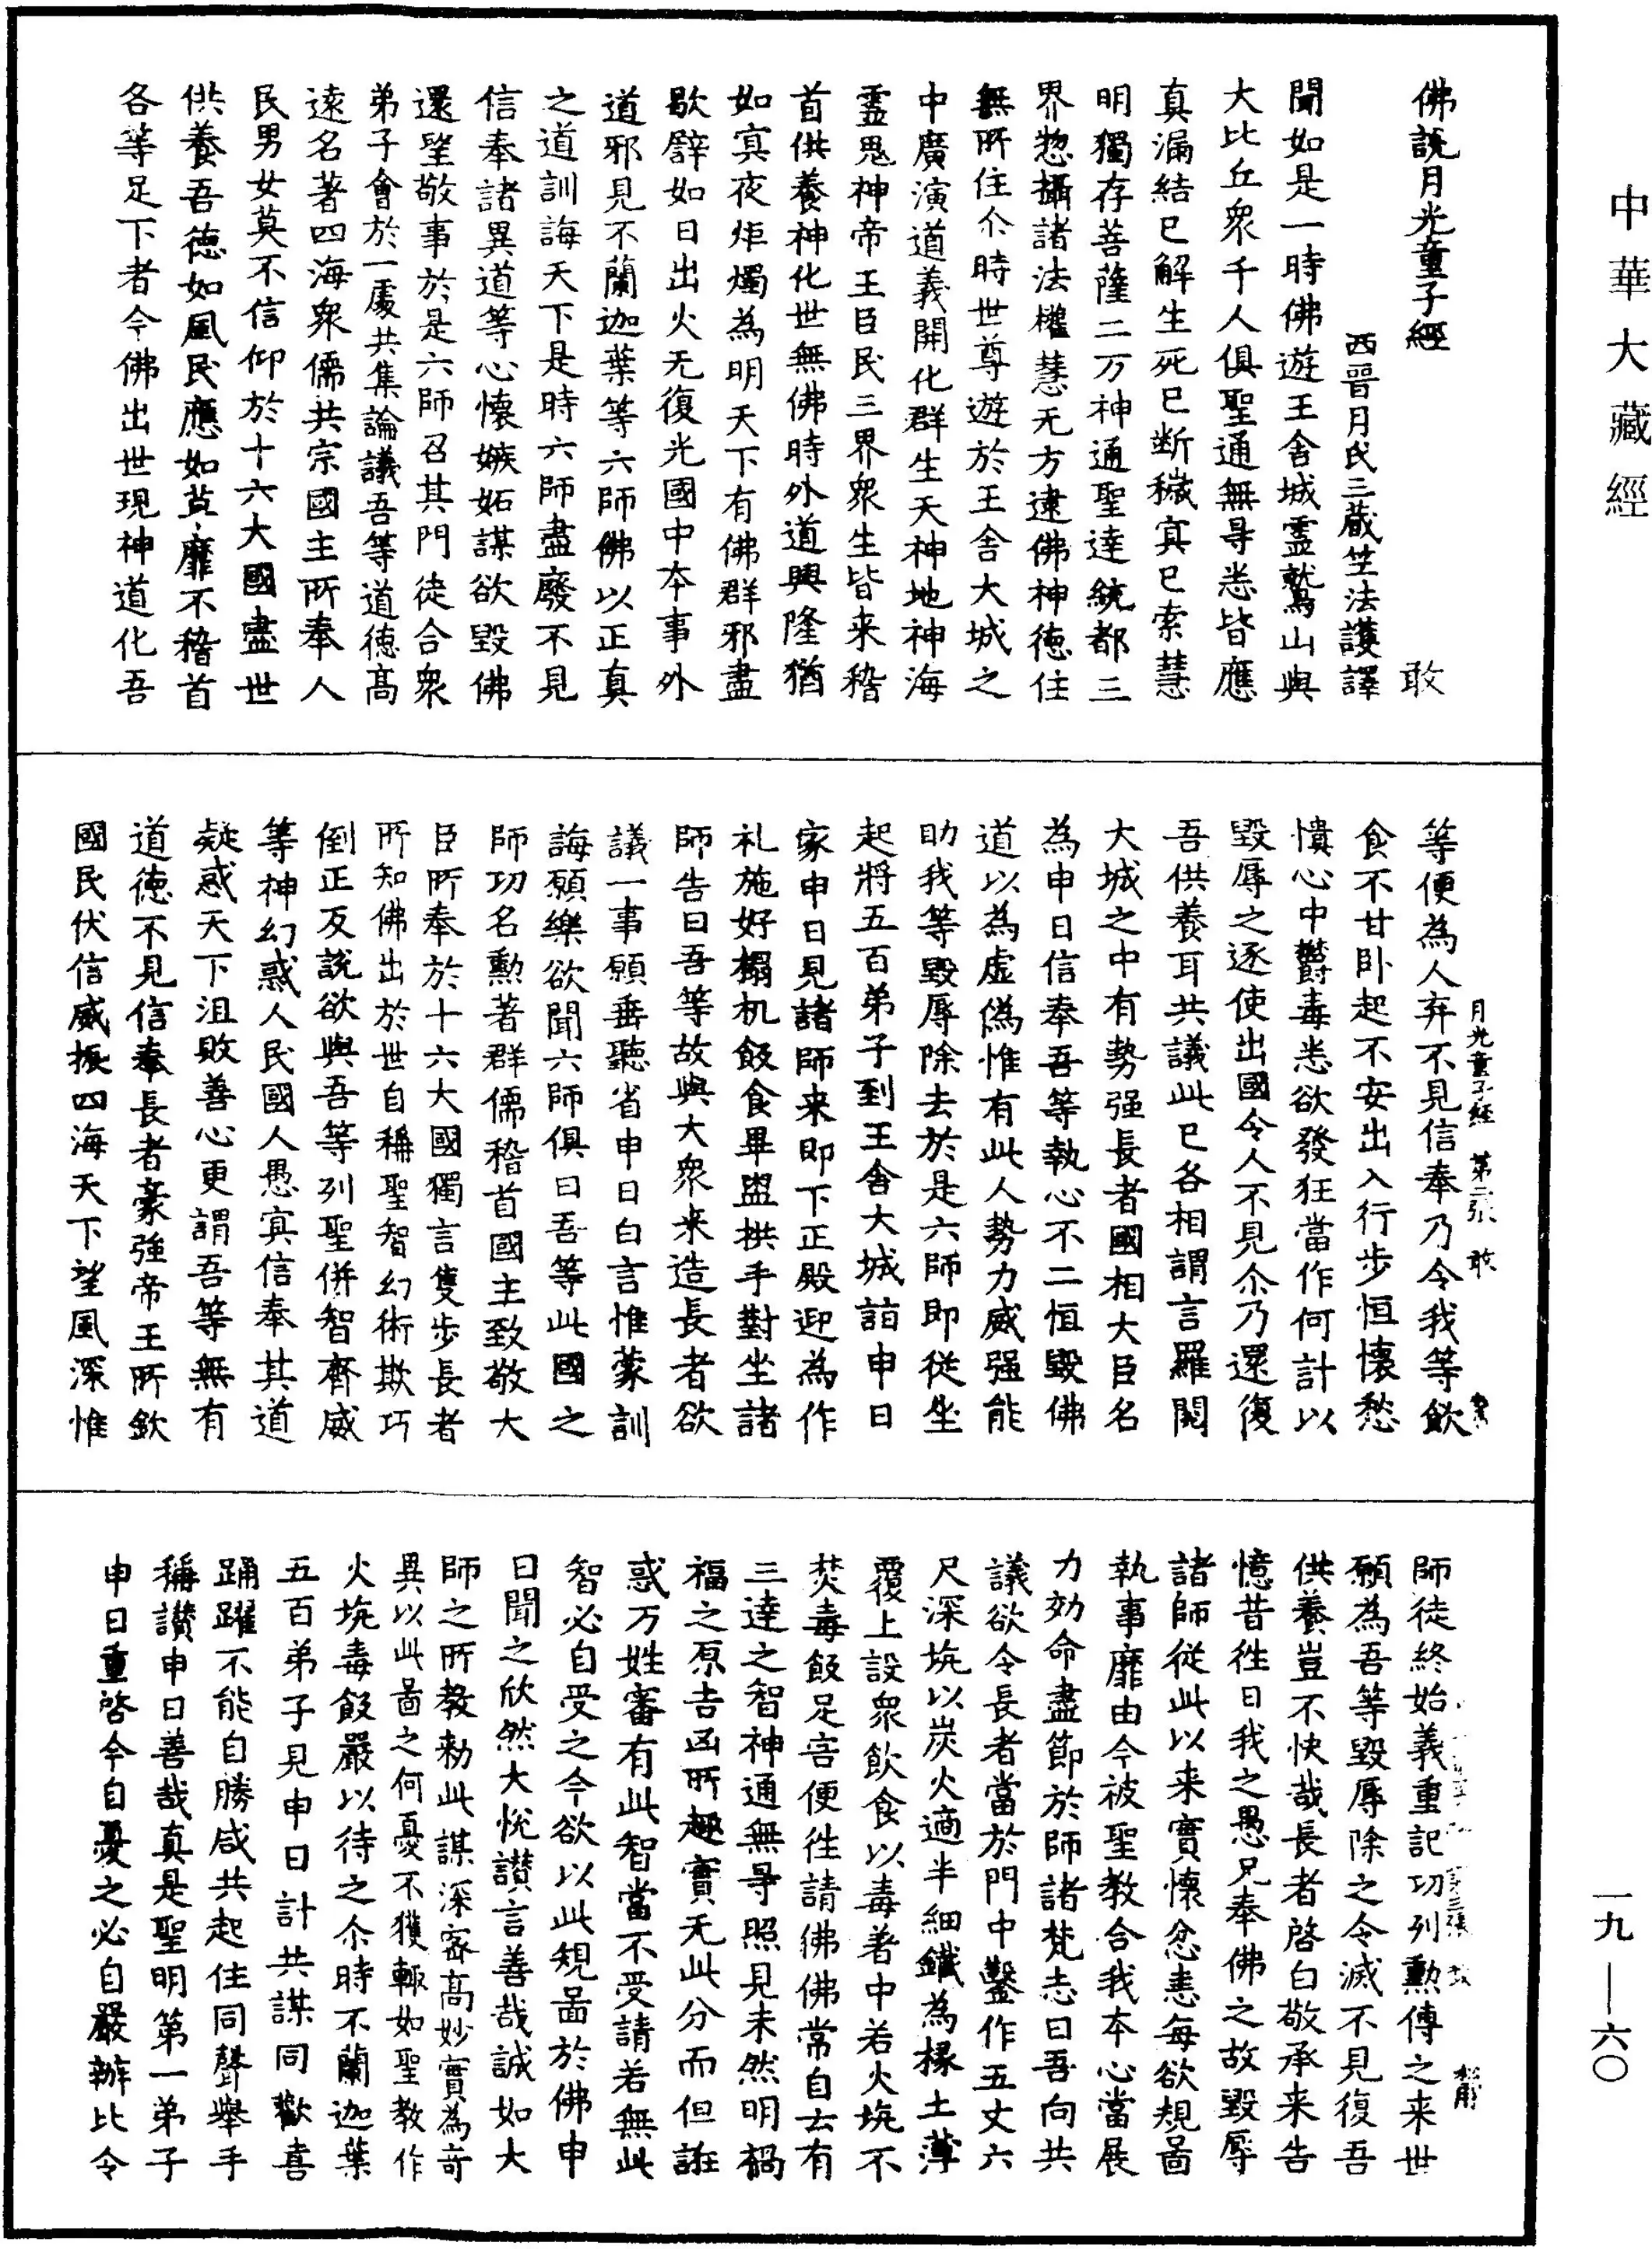 中華大藏經
佛說月光童子經　敢
西晉月氏三藏竺法護譯
聞如是一時佛遊王舍城靈鷲山與
大比丘衆千人俱聖通無㝵悉皆應
真漏結已解生死已断穢冥已索慧
明獨存菩薩二万神通聖達統都三
界惣攝諸法權慧无方逮佛神德住
無所住尒時世尊遊於王舍大城之
中廣演道義開化群生天神地神海
靈鬼神帝王臣民三界衆生皆来稽
首供養神化世無佛時外道興隆猶
如冥夜炬燭為明天下有佛群邪盡
歇譬如日出火无復光國中本事外
道邪見不蘭迦葉等六師佛以正真
之道訓誨天下是時六師盡廢不見
信奉諸異道等心懷嫉妬謀欲毀佛
還望敬事於是六師召其門徒合衆
弟子會於一處共集論議吾等道德高
遠名著四海衆儒共宗國主所奉人
民男女莫不信仰於十六大國盡世
供養吾德如風民應如草靡不稽首
各等足下者今佛出世現神道化吾
月光童子經　第二張　敢
等便為人弃不見信奉乃令我等飲
食不甘卧起不安出入行步恒懷愁
憒心中欝毒悉欲發狂當作何計以
毀辱之逐使出國令人不見尒乃還復
吾供養耳共議此已各相謂言羅閱
大城之中有勢强長者國相大臣名
為申日信奉吾等執心不二恒毀佛
道以為虛偽惟有此人勢力威强能
助我等毀辱除去於是六師即從坐
起將五百弟子到王舍大城詣申日
家申日見諸師来即下正殿迎為作
礼施好榻机飯食畢盥拱手對坐諸
師告曰吾等故與大衆来造長者欲
議一事願垂聽省申日白言惟蒙訓
誨願樂欲聞六師俱曰吾等此國之
師功名勲著群儒稽首國主致敬大
臣所奉於十六大國獨言隻步長者
所知佛出於世自稱聖智幻術欺巧
倒正反說欲與吾等列聖併智齊威
等神幻惑人民國人愚冥信奉其道
疑惑天下沮敗善心更謂吾等無有
道德不見信奉長者豪强帝王所欽
國民伏信威振四海天下望風深惟
師徒終始義重記功列勲傳之来世
願為吾等毀辱除之令滅不見復吾
供養豈不快哉長者啓白敬承来告
憶昔往日我之愚兄奉佛之故毀辱
諸師從此以来實懷忿恚每欲規啚
執事靡由今被聖教合我本心當展
力効命盡節於師諸梵志曰吾向共
議欲令長者當於門中鑿作五丈六
尺深坑以炭火適半細鐵為椽土薄
覆上設衆飲食以毒著中若火坑不
焚毒飯足害便往請佛佛常自去有
三達之智神通無㝵照見未然明禍
福之原吉凶所趣實无此分而但誑
惑万姓審有此智當不受請若無此
智必自受之今欲以此規啚於佛申
日聞之欣然大悅讃言善哉誠如大
師之所教勑此謀深密高妙實為竒
異以此啚之何憂不獲輙如聖教作
火坑毒飯嚴以待之尒時不蘭迦葉
五百弟子見申日計共謀同歡喜
踊躍不能自勝咸共起住同聲舉手
稱讃申日善哉真是聖明第一弟子
申日重啓今自憂之必自嚴辦比令
一九—六〇